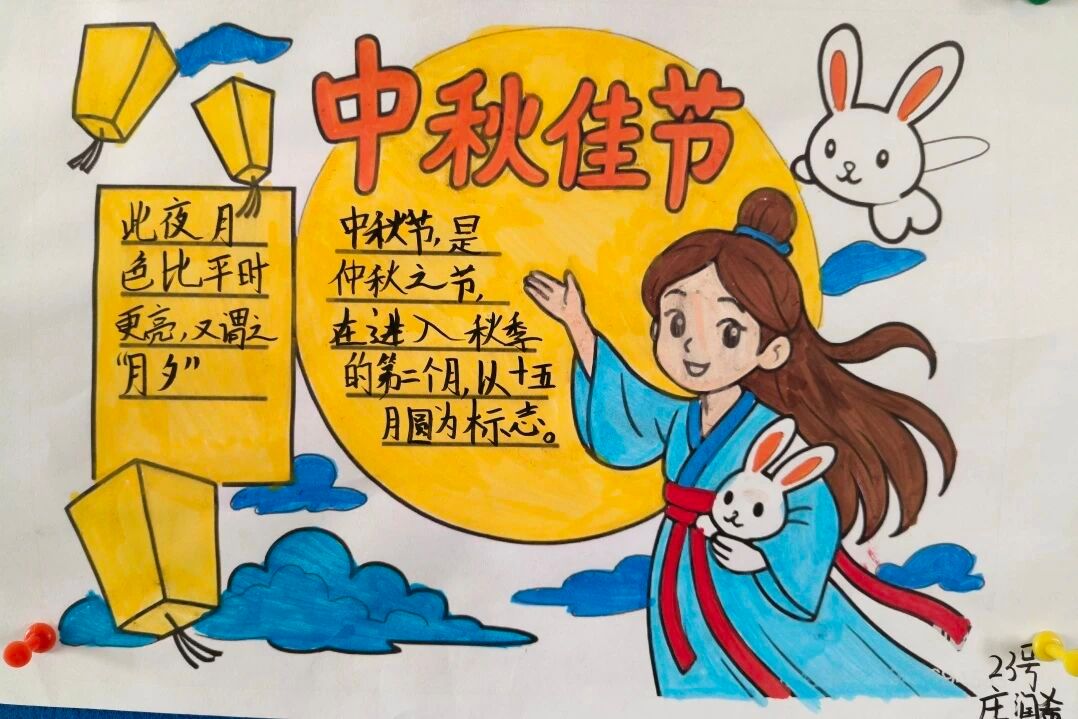 中秋佳节
此夜月
色比平时
更亮,又谓之
“月夕”
中秋节,是
仲秋之节,
在进入秋季
的第二个月,以十五
月圆为标志。
23号
庄润希